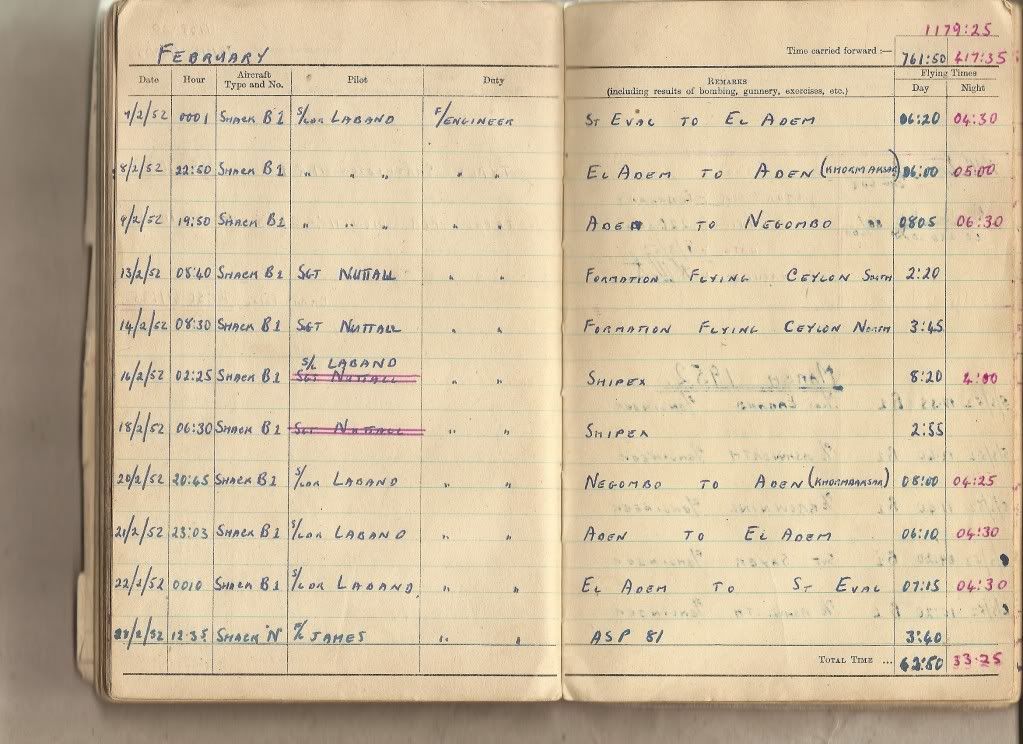 1179:25
FEBRUARY
Time carried forward :— 761:50 417:35
Date Hour Aircraft Type and No. Pilot Duty REMARKS (including results of bombing, gunnery, exercises, etc.) Flying Times Day Night
7/2/52 0001 SHACK B1 S/LDR LABAND F/ENGINEER ST EVAL TO EL ADEM 06:20 04:30
8/2/52 22:50 SHACK B1 " " " " " EL ADEM TO ADEN (KHORMAKSAR) 06:00 05:00
9/2/52 19:50 SHACK B1 " " " " " ADEN TO NEGOMBO 0805 06:30
13/2/52 08:40 SHACK B1 SGT NUTTALL " " FORMATION FLYING CEYLON SOUTH 2:20
14/2/52 08:30 SHACK B1 SGT NUTTALL " " FORMATION FLYING CEYLON NORTH 3:45
S/L LABAND
16/2/52 02:25 SHACK B1 SGT NUTTALL " " SHIPEX 8:20 4:00
18/2/52 06:30 SHACK B1 SGT NUTTALL " " SHIPEX 2:55
20/2/52 20:45 SHACK B1 S/LDR LABAND " " NEGOMBO TO ADEN (KHORMAKSAR) 08:00 04:25
21/2/52 23:03 SHACK B1 S/LDR LABAND " " ADEN TO EL ADEM 06:10 04:30
22/2/52 0010 SHACK B1 S/LDR LABAND " " EL ADEM TO ST EVAL 07:15 04:30
28/2/52 12:35 SHACK "N" F/L JAMES " " ASP 81 3:40
TOTAL TIME ... 62:50 33:25